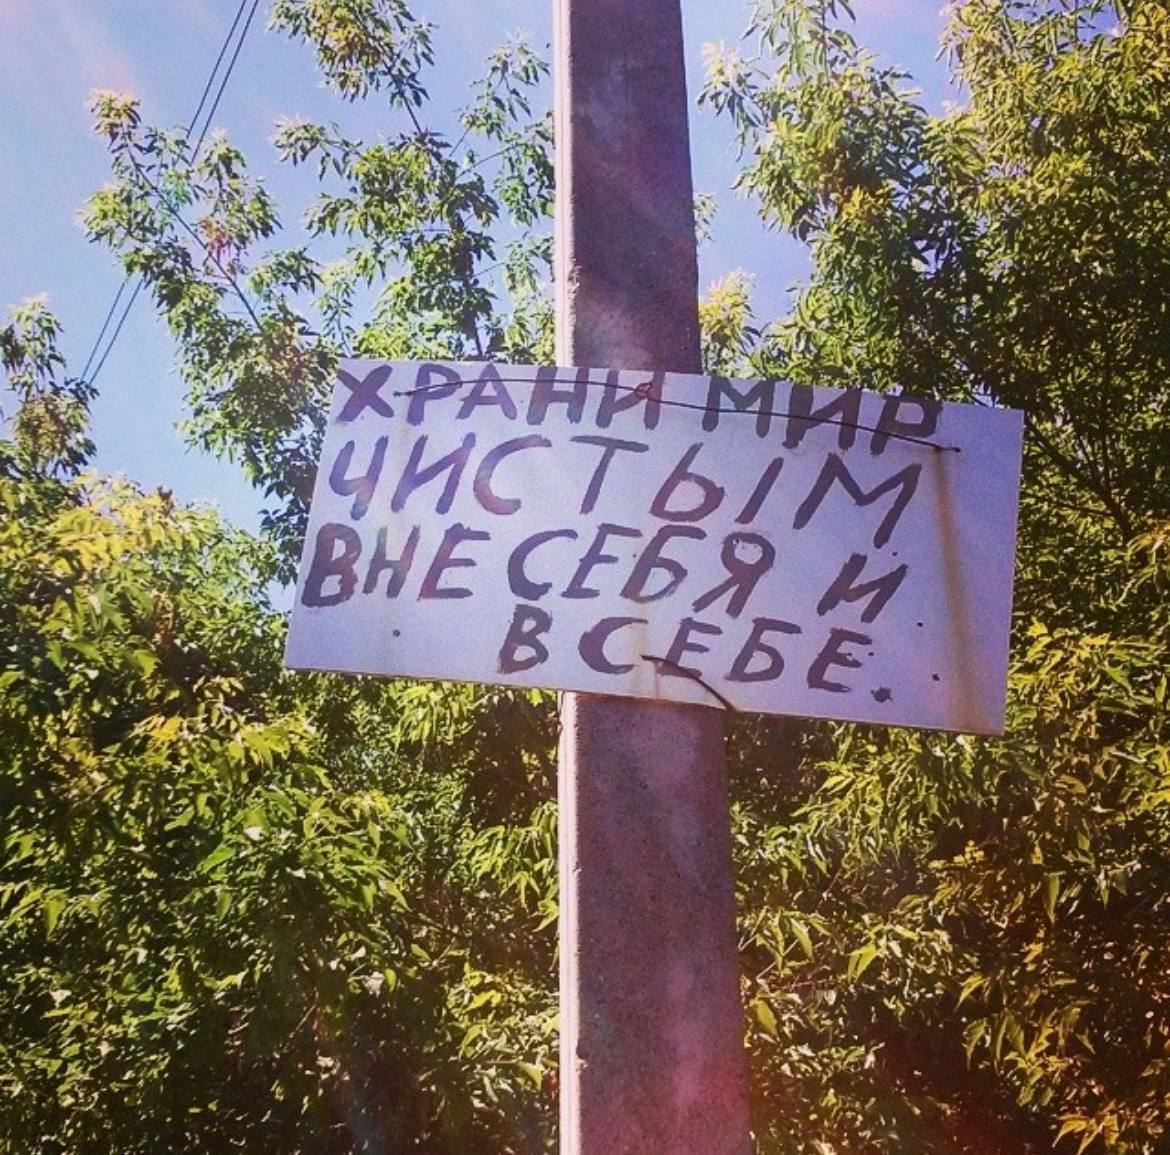 ХРАНИ МИР
ЧИСТЫМ
ВНЕ СЕБЯ И
В СЕБЕ.